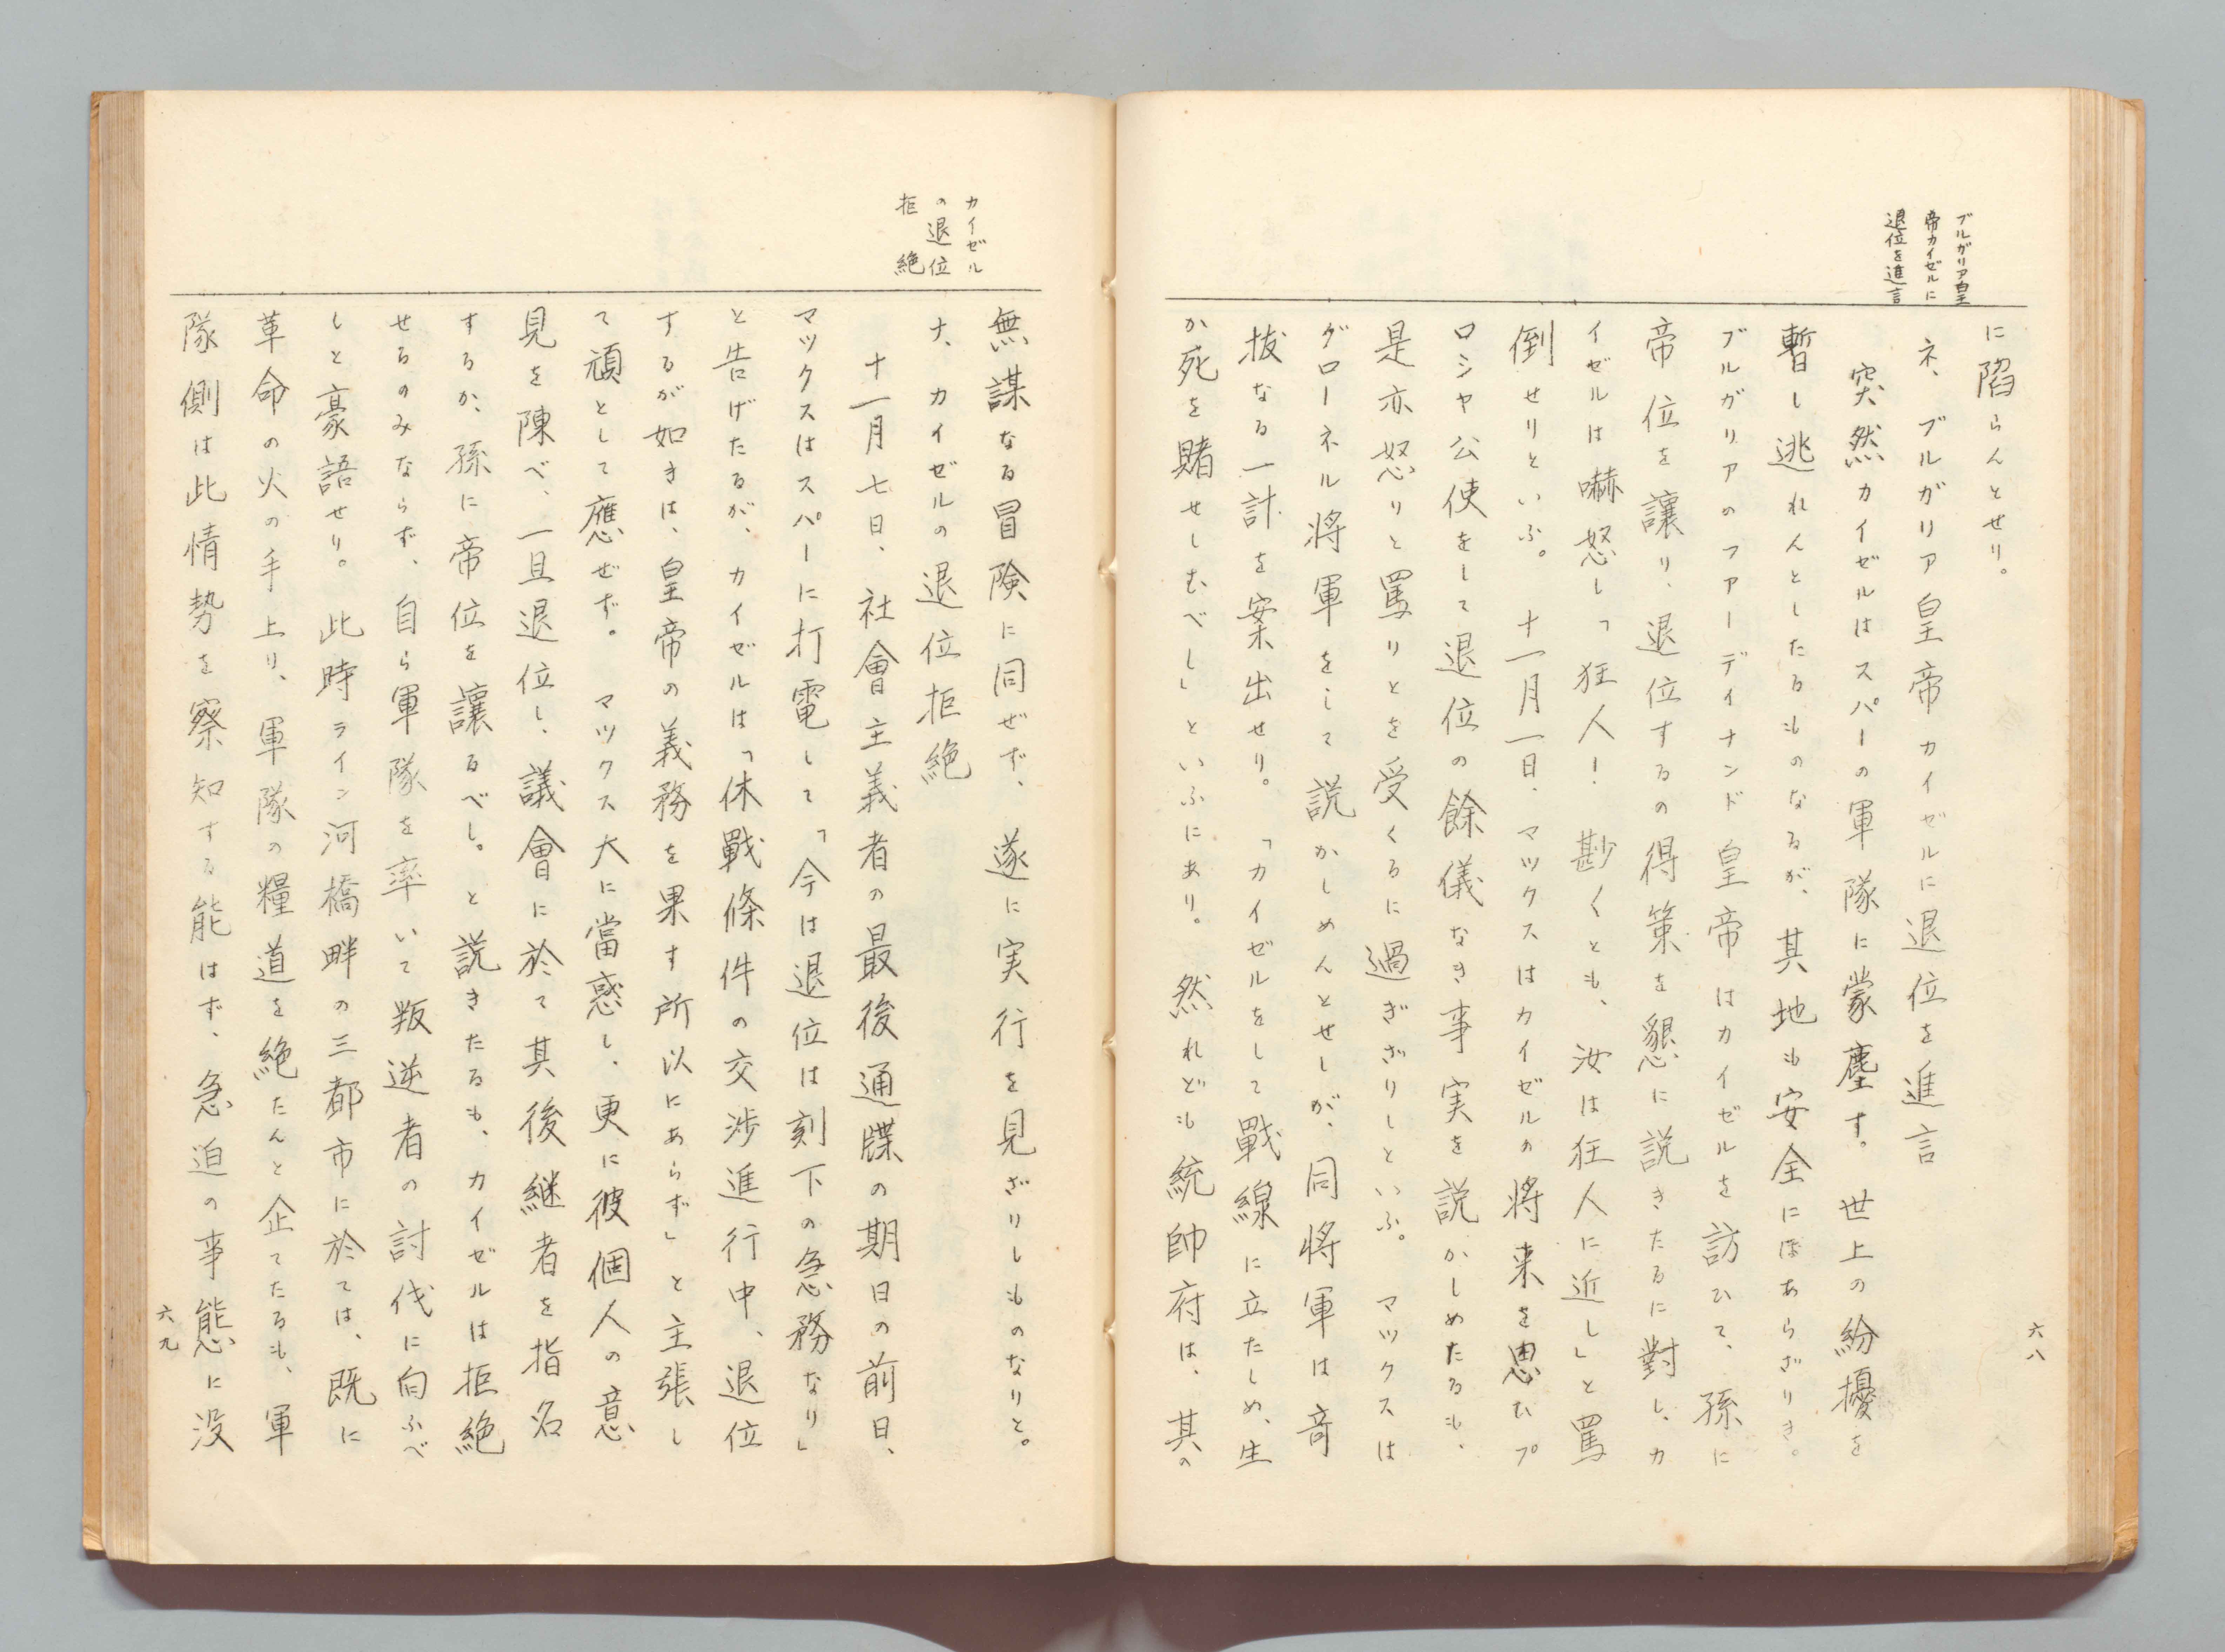 六八
ブルガリア皇
帝カイゼルに
退位を進言
に陥らんとせり。
ネ、ブルガリア皇帝カイゼルに退位を進言
突然カイゼルはスパーの軍隊に蒙塵す。世上の紛擾を
暫し逃れんとしたるものなるが、其地も安全にはあらざりき。
ブルガリアのファーディナンド皇帝はカイゼルを訪ひて、孫に
帝位を譲り、退位するの得策を懇に説きたるに對し、カ
イゼルは嚇怒し「狂人!尠くとも、汝は狂人に近し」と罵
倒せりといふ。十一月一日、マックスはカイゼルの将来を思ひプ
ロシヤ公使をして退位の餘儀なき事実を説かしめたるも、
是亦怒りと罵りとを受くるに過ぎざりしといふ。マックスは
グローネル将軍をして説かしめんとせしが、同将軍は奇
抜なる一計を案出せり。「カイゼルをして戰線に立たしめ、生
か死を賭せしむべし」といふにあり。然れども統帥府は、其の
カイゼル
の退位
拒絶
無謀なる冒険に同ぜず、遂に実行を見ざりしものなりと。
ナ、カイゼルの退位拒絶
十一月七日、社會主義者の最後通牒の期日の前日、
マックスはスパーに打電して「今は退位は刻下の急務なり」
と告げたるが、カイゼルは「休戰條件の交渉進行中、退位
するが如きは、皇帝の義務を果す所以にあらず」と主張し
て頑として應ぜず。マックス大に當惑し、更に彼個人の意
見を陳べ、一旦退位し、議會に於て其後継者を指名
するか、孫に帝位を讓るべし。と説きたるも、カイゼルは拒絶
せるのみならず、自ら軍隊を率いて叛逆者の討伐に向ふべ
しと豪語せり。此時ライン河橋畔の三都市に於ては、既に
革命の火の手上り、軍隊の糧道を絶たんと企てたるも、軍
隊側は此情勢を察知する能はず、急迫の事態に没
六九